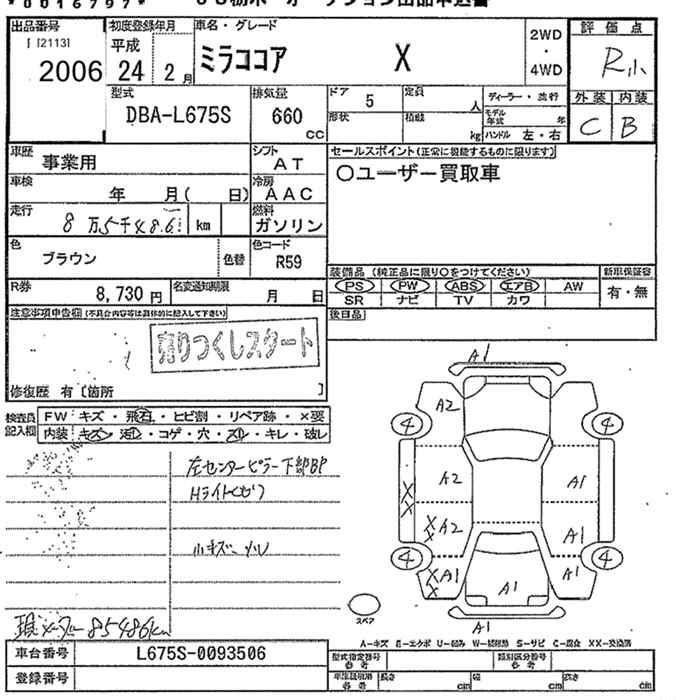 *0016797*
出品番号
[ [2113]
2006
初度登録年月
平成
24 2 月
車名・グレード
ミラココア X
2WD
・
4WD
評価点
R小
外装 内装
C B
型式
DBA-L675S
排気量
660
CC
ドア
5
定員
人
形状
積載
kg
ディーラー・並行
モデル年式 年
ハンドル 左・右
車歴
事業用
シフト
AT
車検
年 月( 日)
冷房
AAC
走行
8万5千486 km
燃料
ガソリン
色
ブラウン
色替
色コード
R59
R券
8,730 円
名変通知期限
月 日
セールスポイント(正常に機能するものに限ります)
〇ユーザー買取車
装備品 (純正品に限り〇をつけてください)
PS PW ABS エアB AW
SR ナビ TV カワ
新車保証書
有・無
後日品
注意事項申告欄 (不具合内容等は具体的に記入して下さい)
売りつくしスタート
修復歴 有〔箇所 〕
検査員記入欄
FW キズ・飛石・ヒビ割・リペア跡・×要
内装 キズ・汚・コゲ・穴・スレ・キレ・破レ
左センターピラー下部BP
Hライトくもり
小キズ、ハレ
現メーター85486km
車台番号 L675S-0093506
登録番号
A1
A2
4 4
A2 A1
X
X
X
X A2 A1
4 4
X
X A1 A1 A1
A1
スペア
A-キズ E-エクボ U-凹み W-補修跡 S-サビ C-腐食 XX-交換済
型式指定番号
参考
類別区分番号
参考
長さ cm 幅 cm 高さ cm